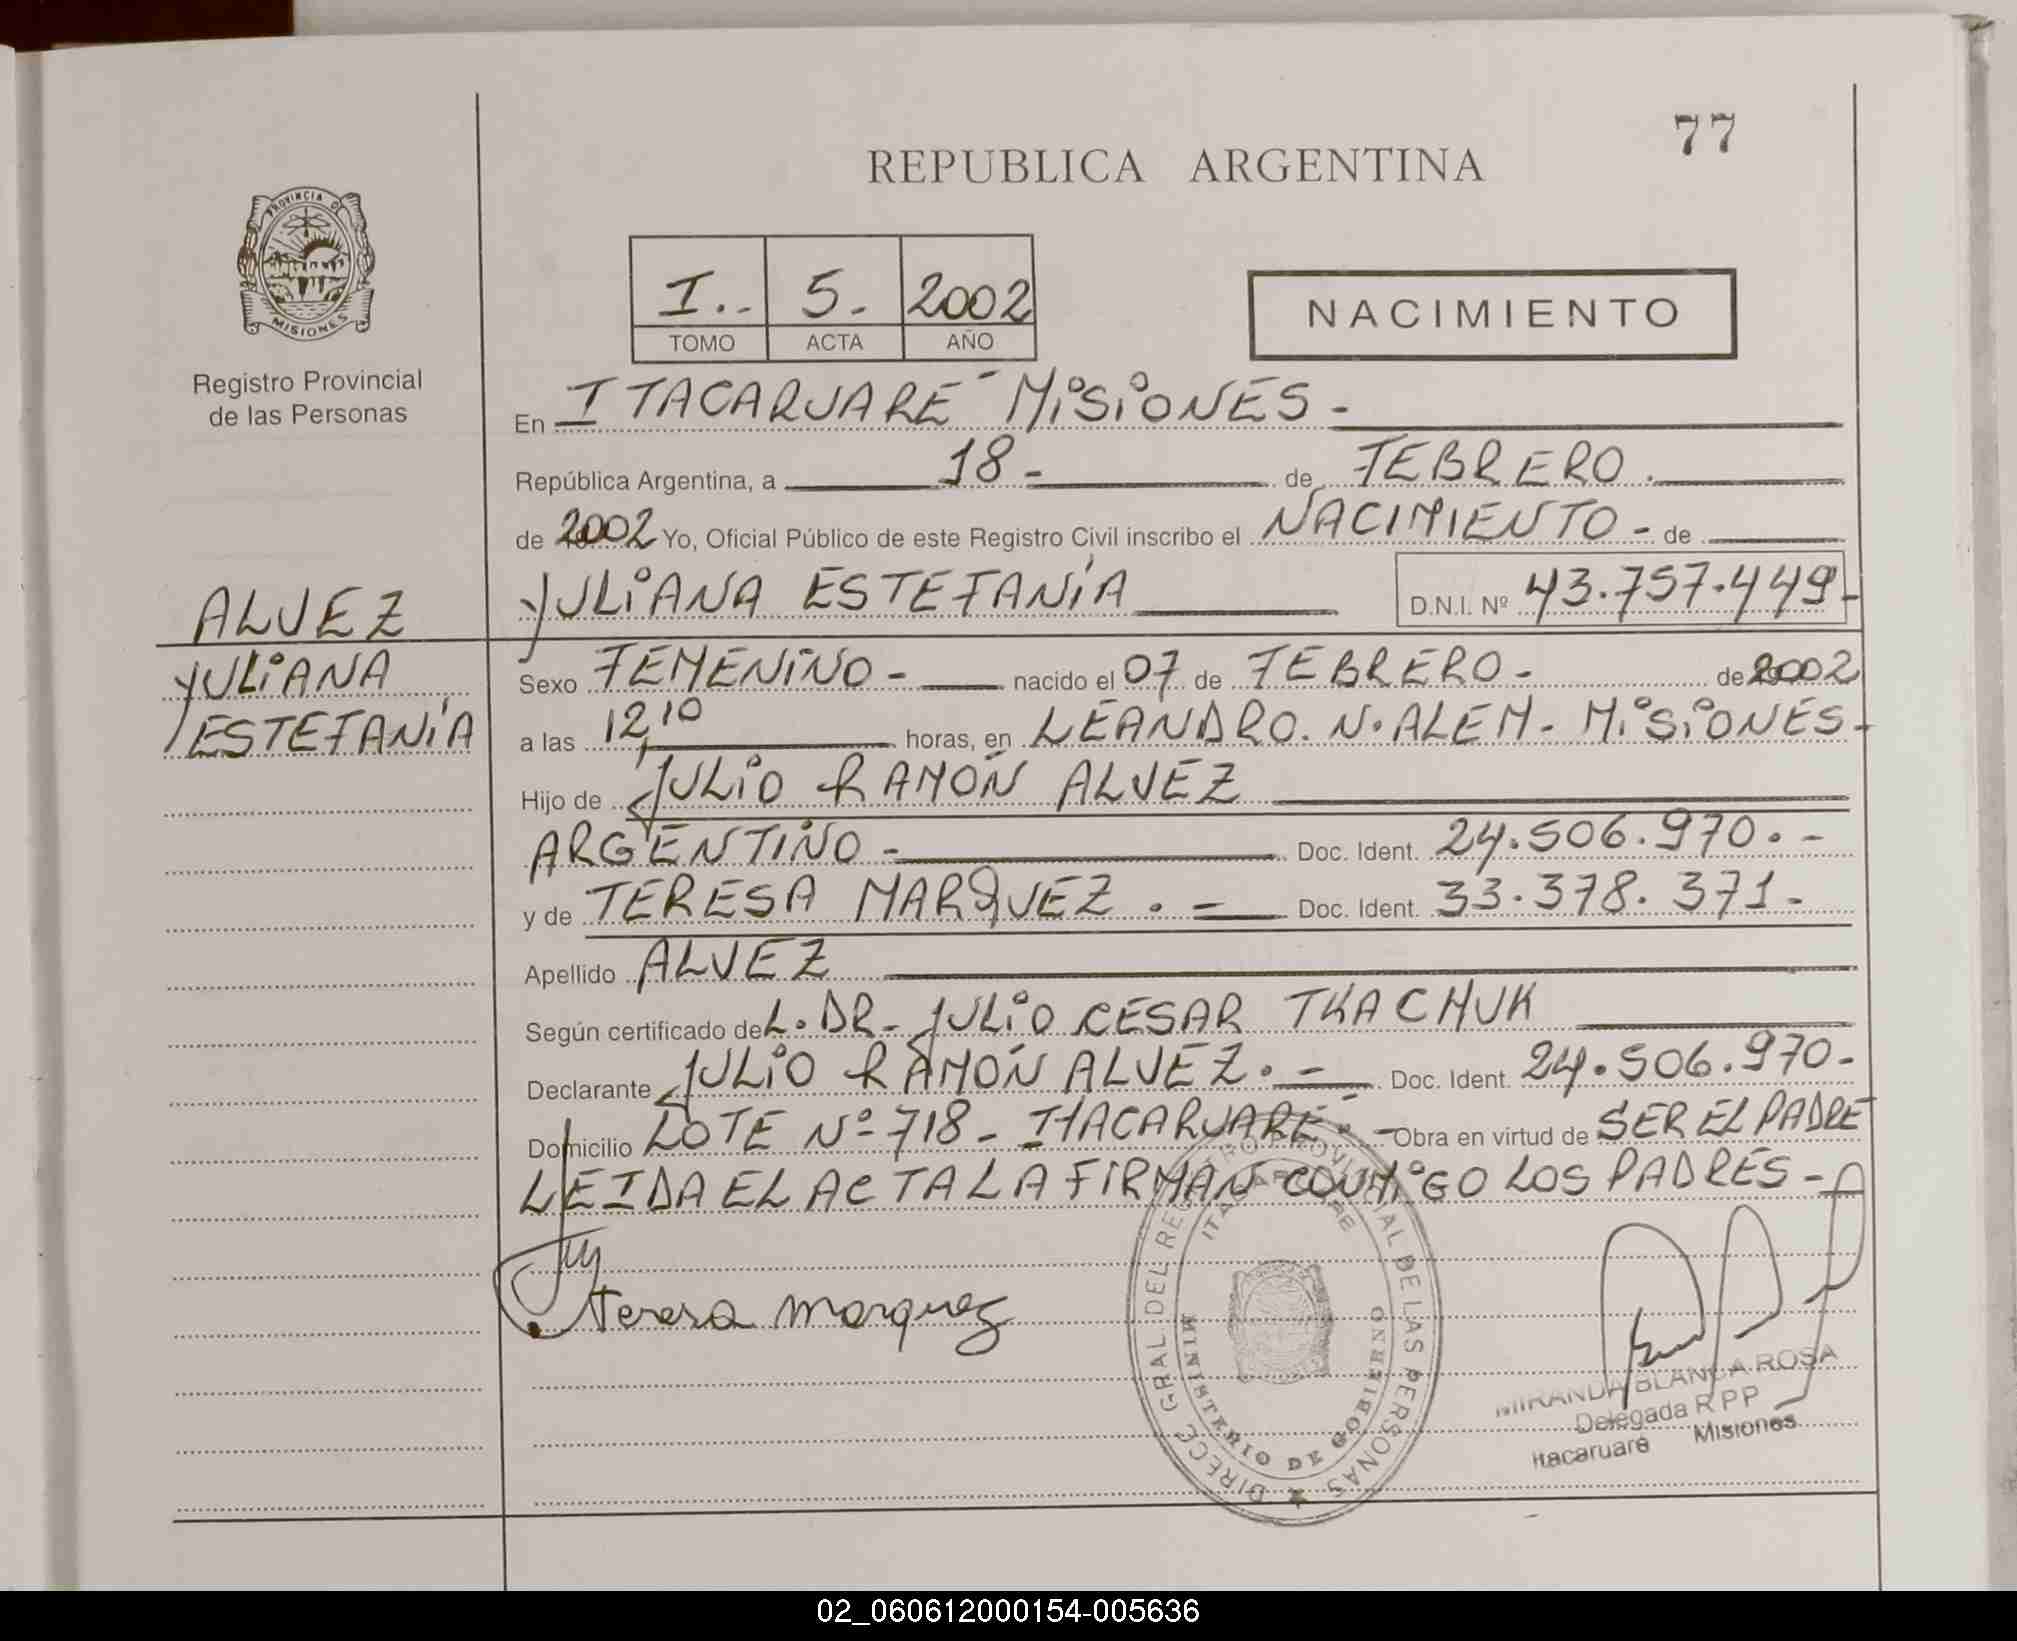 77
REPUBLICA ARGENTINA
PROVINCIA DE
MISIONES
Registro Provincial
de las Personas
I.. 5.- 2002
TOMO ACTA AÑO
NACIMIENTO
En ITACARUARÉ MISIONES -
República Argentina, a 18 - de FEBRERO.
de 2002 Yo, Oficial Público de este Registro Civil inscribo el NACIMIENTO - de
YULIANA ESTEFANÍA D.N.I. Nº 43.757.449 -
ALVEZ
YULIANA
ESTEFANÍA
Sexo FEMENINO - nacido el 07 de FEBRERO - de 2002
a las 12,10 horas, en LEANDRO. N. ALEM - MISIONES -
Hijo de JULIO RAMÓN ALVEZ
ARGENTINO - Doc. Ident. 24.506.970. -
y de TERESA MARQUEZ. - Doc. Ident. 33.378.371 -
Apellido ALVEZ
Según certificado de L. DR - JULIO CESAR TKACHUK
Declarante JULIO RAMÓN ALVEZ. - Doc. Ident. 24.506.970 -
Domicilio LOTE Nº 718 - ITACARUARÉ. - Obra en virtud de SER EL PADRE
LEIDA EL ACTA LA FIRMAN CONMIGO LOS PADRES -
teresa marquez
DIRECC GRAL DEL REGISTRO PROVINCIAL DE LAS PERSONAS
ITACARUARE
MINISTERIO DE GOBIERNO
MIRANDA BLANCA ROSA
Delegada R P P
Itacaruaré Misiones
02_060612000154-005636